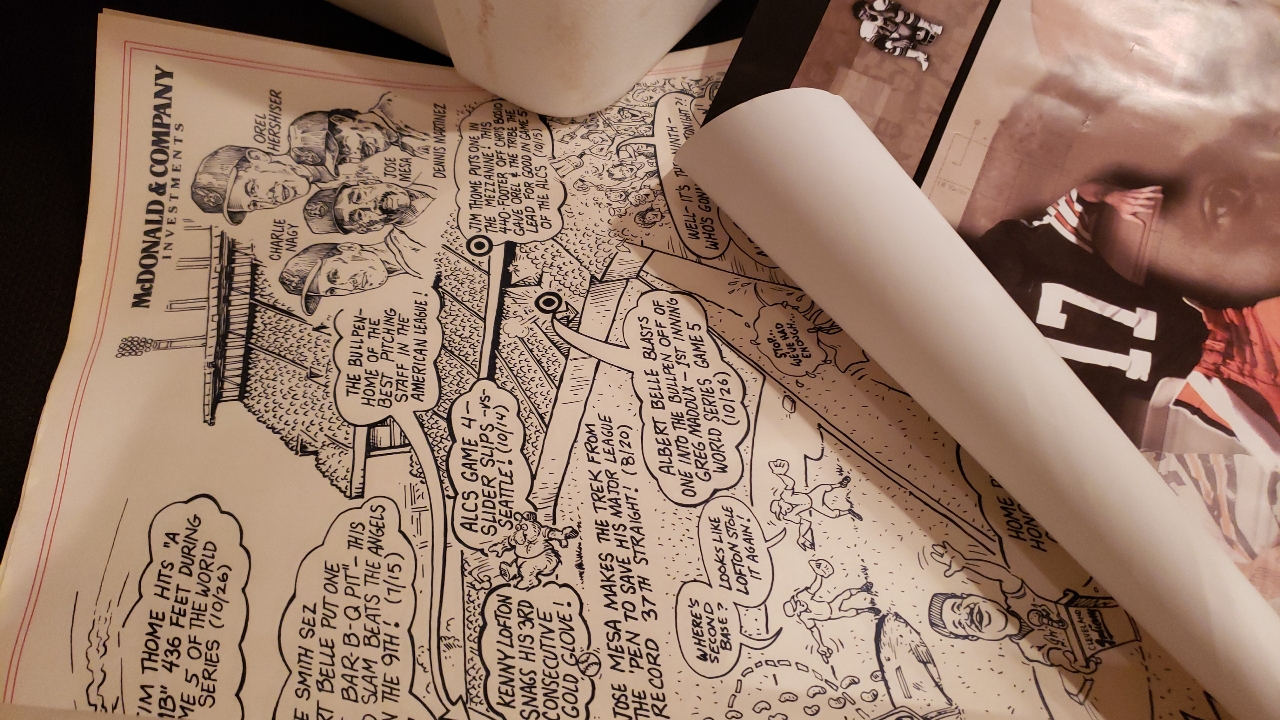 McDONALD & COMPANY
INVESTMENTS
OREL
HERSHISER
JOSE
MESA
DENNIS MARTINEZ
CHARLIE
NAGY
THE BULLPEN-
HOME OF THE
BEST PITCHING
STAFF IN THE
AMERICAN LEAGUE!
JIM THOME PUTS ONE IN
THE MEZZANINE! THIS
440-FOOTER OFF CHRIS BOSIO
GAVE OREL & THE TRIBE THE
LEAD FOR GOOD IN GAME 5
OF THE ALCS (10/15)
WELL-IT'S THE
WHO'S GON
ALCS GAME 4-
SLIDER SLIPS -VS-
SEATTLE! (10/14)
ALBERT BELLE BLASTS
ONE INTO THE BULLPEN OFF OF
GREG MADDUX-1ST INNING
WORLD SERIES GAME 5
(10/26)
STOP-
WE'VE HAD
ENOUGH...
JIM THOME HITS "A
436 FEET DURING
5 OF THE WORLD
SERIES (10/26)
SMITH SEZ
BELLE PUT ONE
BAR-B-Q PIT"- THIS
SLAM BEATS THE ANGELS
THE 9TH! (7/15)
KENNY LOFTON
SNAGS HIS 3RD
CONSECUTIVE
GOLD GLOVE!
JOSE MESA MAKES THE TREK FROM
THE 'PEN TO SAVE HIS MAJOR LEAGUE
RECORD 37TH STRAIGHT! (8/20)
WHERE'S
SECOND
BASE?
LOOKS LIKE
LOFTON STOLE
IT AGAIN!
HOME
17